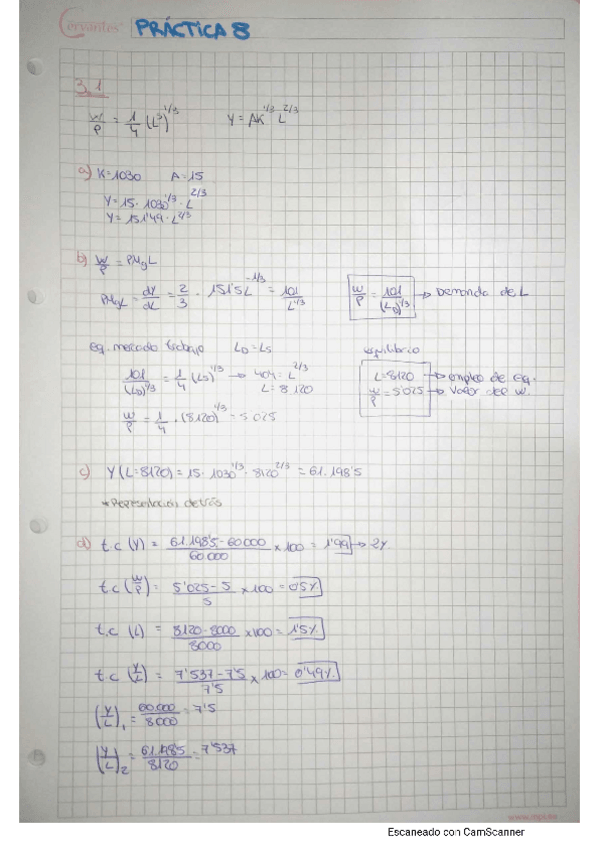 Cervantes PRÁCTICA 8
3.1
W/P = 1/4 (L^S)^1/3 Y = AK^1/3 L^2/3
a) K=1030 A=15
Y=15·1030^1/3·L^2/3
Y=151'49·L^2/3
b) W/P = PMgL
PMgL = dY/dL = 2/3 · 151'5L^-1/3 = 101/L^1/3 W/P = 101/(L_D)^1/3 → Demanda de L
eq. mercado trabajo L_D = L_S equilibrio
101/(L_D)^1/3 = 1/4 (L_S)^1/3 → 404 = L^2/3 L=8120 → empleo de eq.
L=8120 W/P = 5'025 → Valor del W.
W/P = 1/4 · (8120)^1/3 = 5'025
c) Y(L=8120) = 15·1030^1/3·8120^2/3 = 61.198'5
*Representación detrás
d) t.c (Y) = 61.198'5-60000/60.000 x100 = 1'99 → 2%
t.c (W/P) = 5'025-5/5 x100 = 0'5%
t.c (L) = 8120-8000/8000 x100 = 1'5%
t.c (Y/L) = 7'537-7'5/7'5 x 100 = 0'49%
(Y/L)_1 = 60.000/8000 = 7'5
(Y/L)_2 = 61.198'5/8120 = 7'537
Escaneado con CamScanner